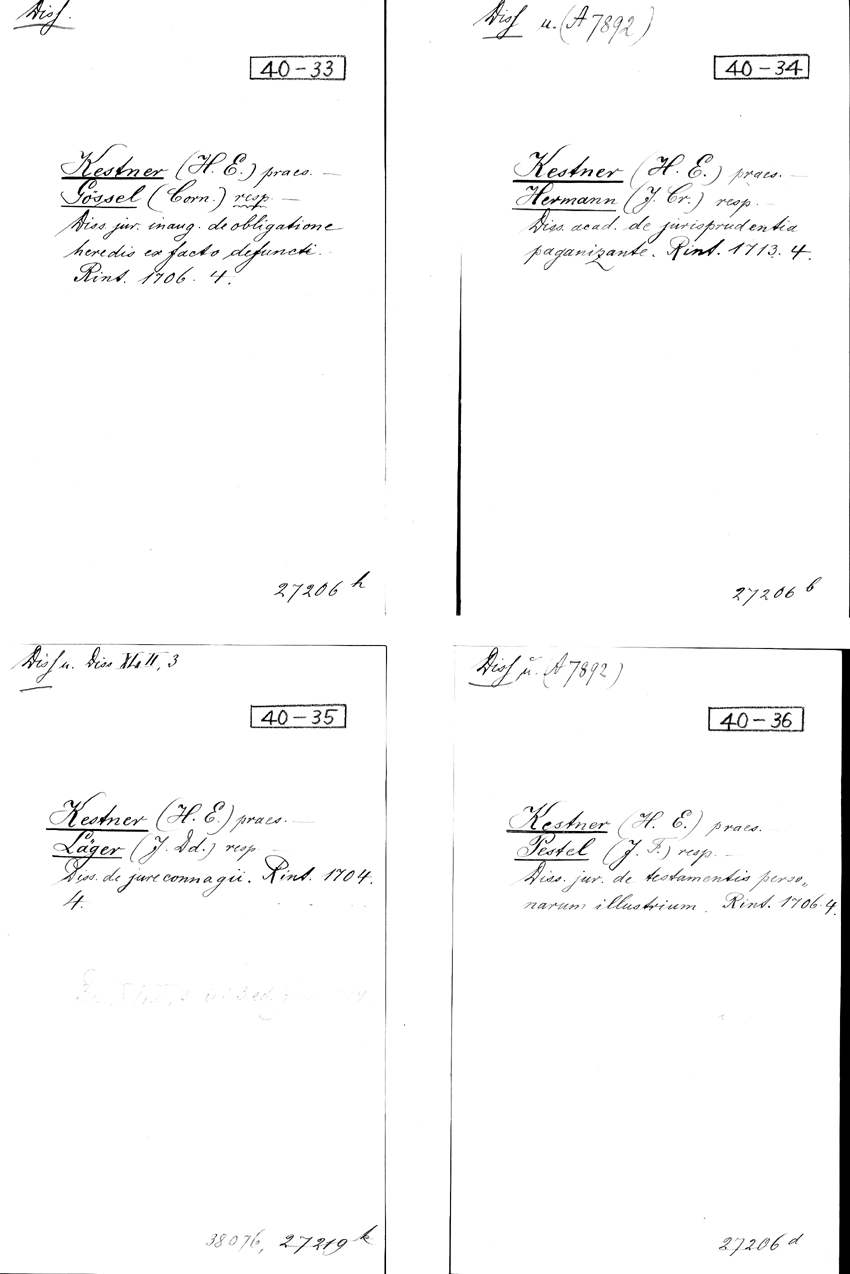 Diss.
40-33
Kestner (H. E.) praes. —
Gössel (Corn.) resp. —
Diss. jur. inaug. de obligatione
heredis ex facto defuncti.
Rint. 1706. 4.
27206 h
Diss u. (A 7892)
40-34
Kestner (H. E.) praes. —
Hermann (J. Cr.) resp. —
Diss. acad. de jurisprudentia
paganizante. Rint. 1713. 4.
27206 b
Diss u. Diss 3
40-35
Kestner (H. E.) praes. —
Läger (J. Dd.) resp —
Diss. de jure connagii. Rint. 1704.
4.
38076, 27219 k
Diss u. (A 7892)
40-36
Kestner (H. E.) praes. —
Pestel (J. F.) resp. —
Diss. jur. de testamentis perso„
narum illustrium. Rint. 1706. 4.
27206 d